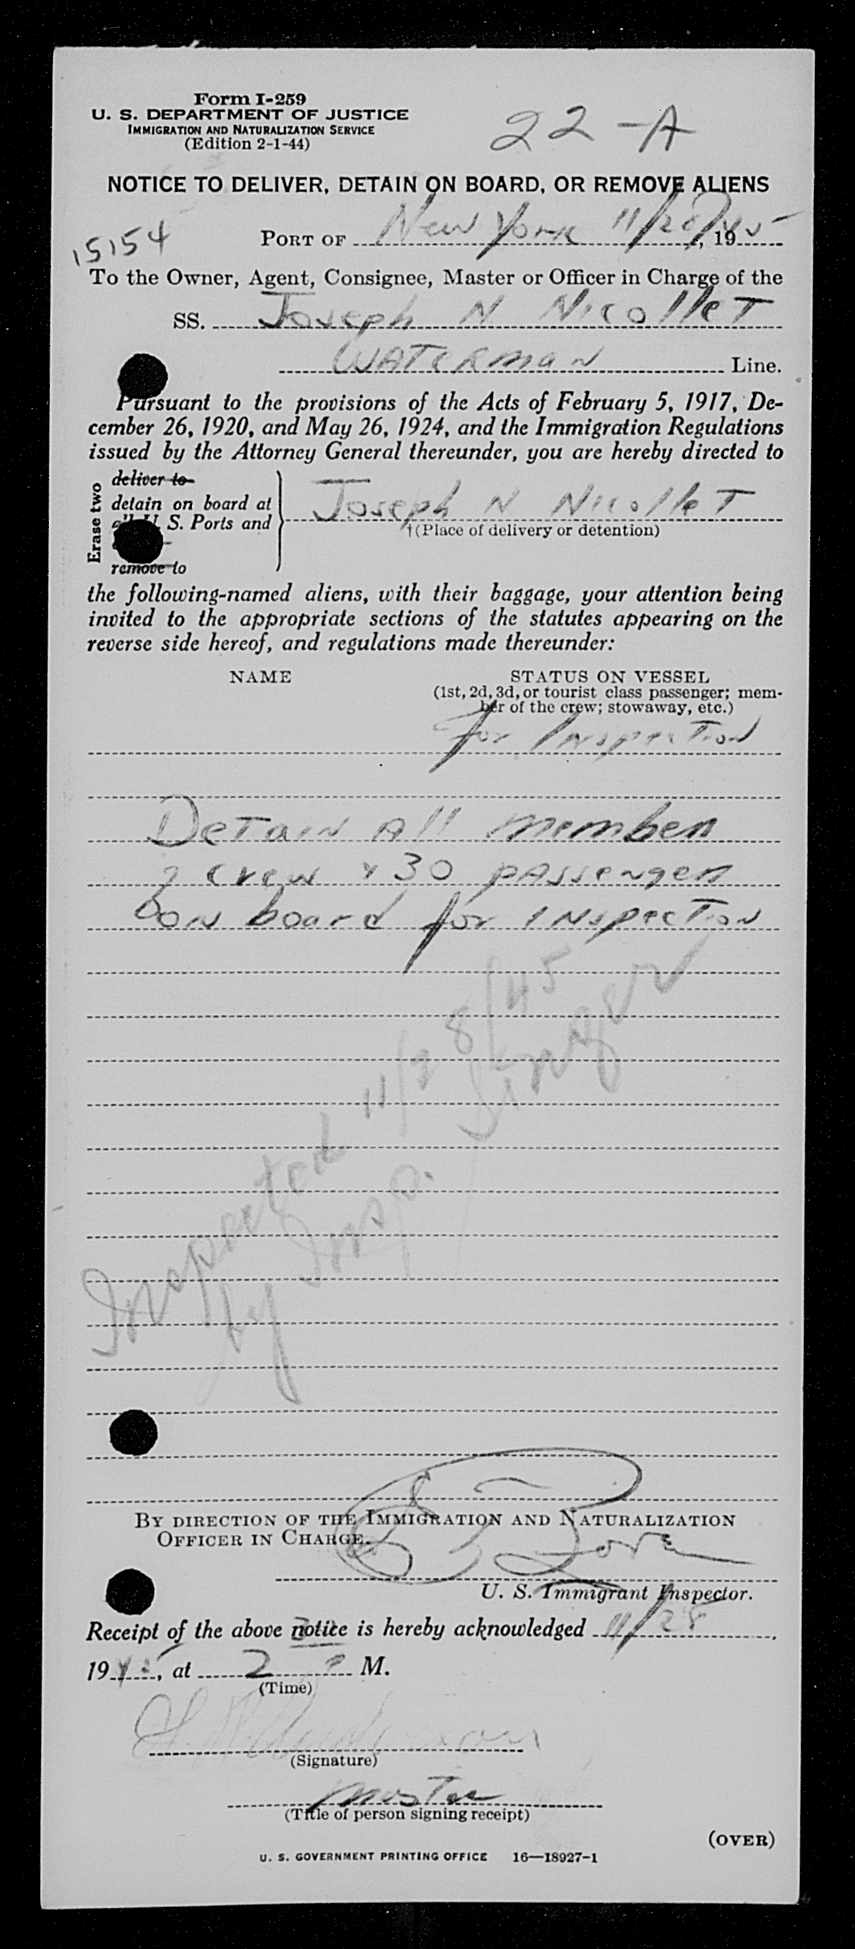 Form I-259
U. S. DEPARTMENT OF JUSTICE
IMMIGRATION AND NATURALIZATION SERVICE
(Edition 2-1-44)
22-A
NOTICE TO DELIVER, DETAIN ON BOARD, OR REMOVE ALIENS
15154
PORT OF New York 11/28/45, 19
To the Owner, Agent, Consignee, Master or Officer in Charge of the
SS. Joseph N Nicollet
WATERMAN Line.
Pursuant to the provisions of the Acts of February 5, 1917, De-
cember 26, 1920, and May 26, 1924, and the Immigration Regulations
issued by the Attorney General thereunder, you are hereby directed to
Erase two
deliver to
detain on board at
S. Ports and
remove to
Joseph N Nicollet
†(Place of delivery or detention)
the following-named aliens, with their baggage, your attention being
invited to the appropriate sections of the statutes appearing on the
reverse side hereof, and regulations made thereunder:
NAME STATUS ON VESSEL
(1st, 2d, 3d, or tourist class passenger; mem-
ber of the crew; stowaway, etc.)
for Inspection
Detain All members
of crew & 30 passengers
on board for Inspection
Inspected 11/28/45
by Insp. Singer
BY DIRECTION OF THE IMMIGRATION AND NATURALIZATION
OFFICER IN CHARGE.
U. S. Immigrant Inspector.
Receipt of the above notice is hereby acknowledged 11/28,
1945, at 2 P M.
(Time)
(Signature)
Master
(Title of person signing receipt)
(OVER)
U. S. GOVERNMENT PRINTING OFFICE 16—18927-1